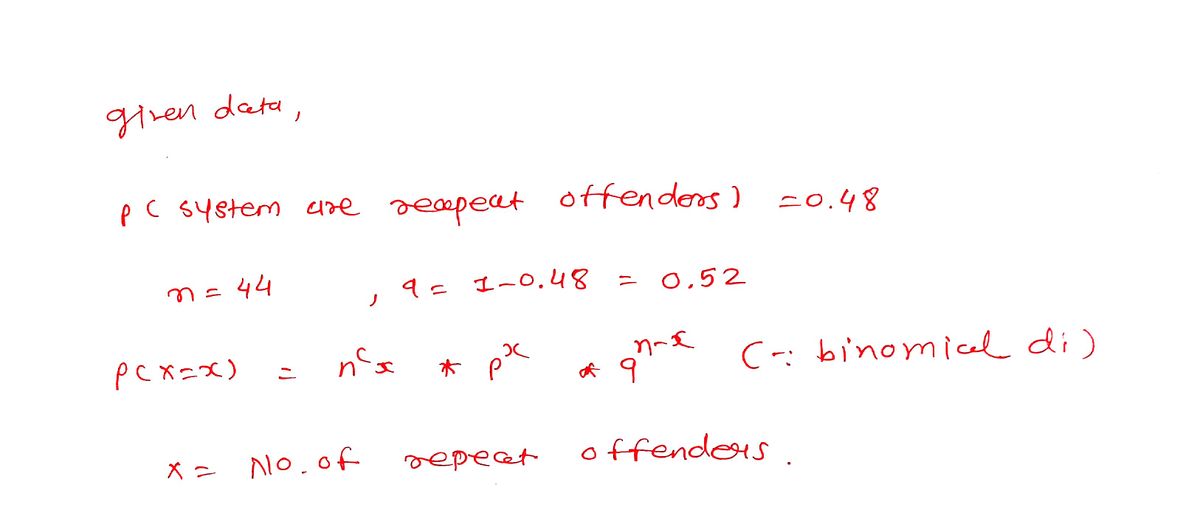 given data,
P( system are reapeat offenders) = 0.48
n = 44 , q = 1-0.48 = 0.52
P(x=x) = nᶜx * pˣ * qⁿ⁻ˣ (∵ binomial di)
x = No. of repeat offenders.